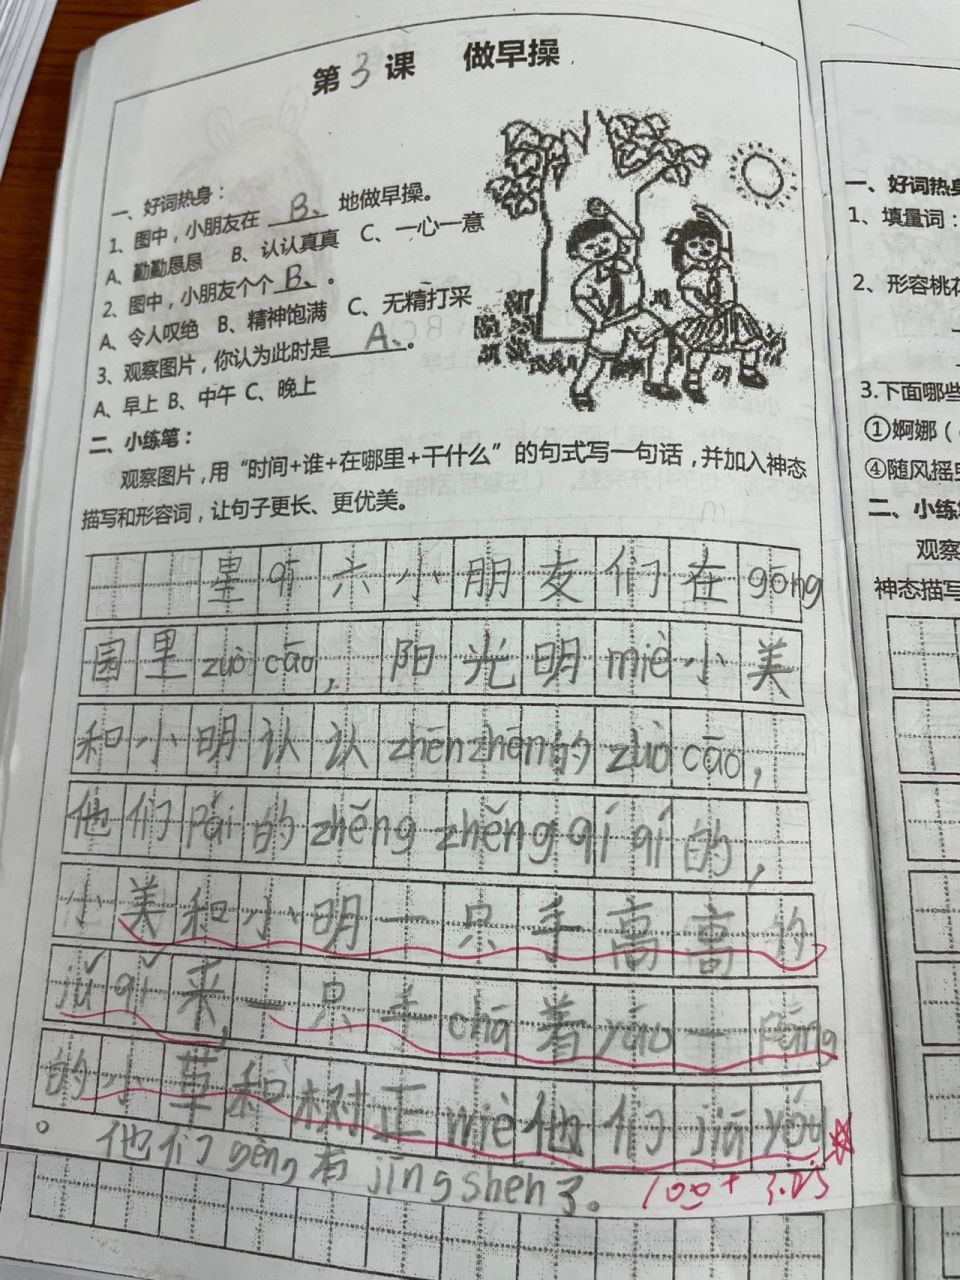 第3课 做早操
一、好词热身：
1、图中，小朋友在 B、 地做早操。
A、勤勤恳恳 B、认认真真 C、一心一意
2、图中，小朋友个个 B、 。
A、令人叹绝 B、精神饱满 C、无精打采
3、观察图片，你认为此时是 A、 。
A、早上 B、中午 C、晚上
二、小练笔：
观察图片，用“时间+谁+在哪里+干什么”的句式写一句话，并加入神态
描写和形容词，让句子更长、更优美。
星qī六小朋友们在gōng
园里zuò cāo，阳光明miè小美
和小明认认zhēnzhēn的zuò cāo，
他们pái的zhěng zhěng qí qí的，
小美和小明一只手高高的
jǔ qǐ来，一只手chā着yāo一páng
的小草和树正wiè他们jiā yóu
。他们gèng有jīng shén了。
100+
一、好词热身
1、填量词：
2、形容桃花
3.下面哪些
①婀娜（
④随风摇曳
二、小练笔
观察
神态描写